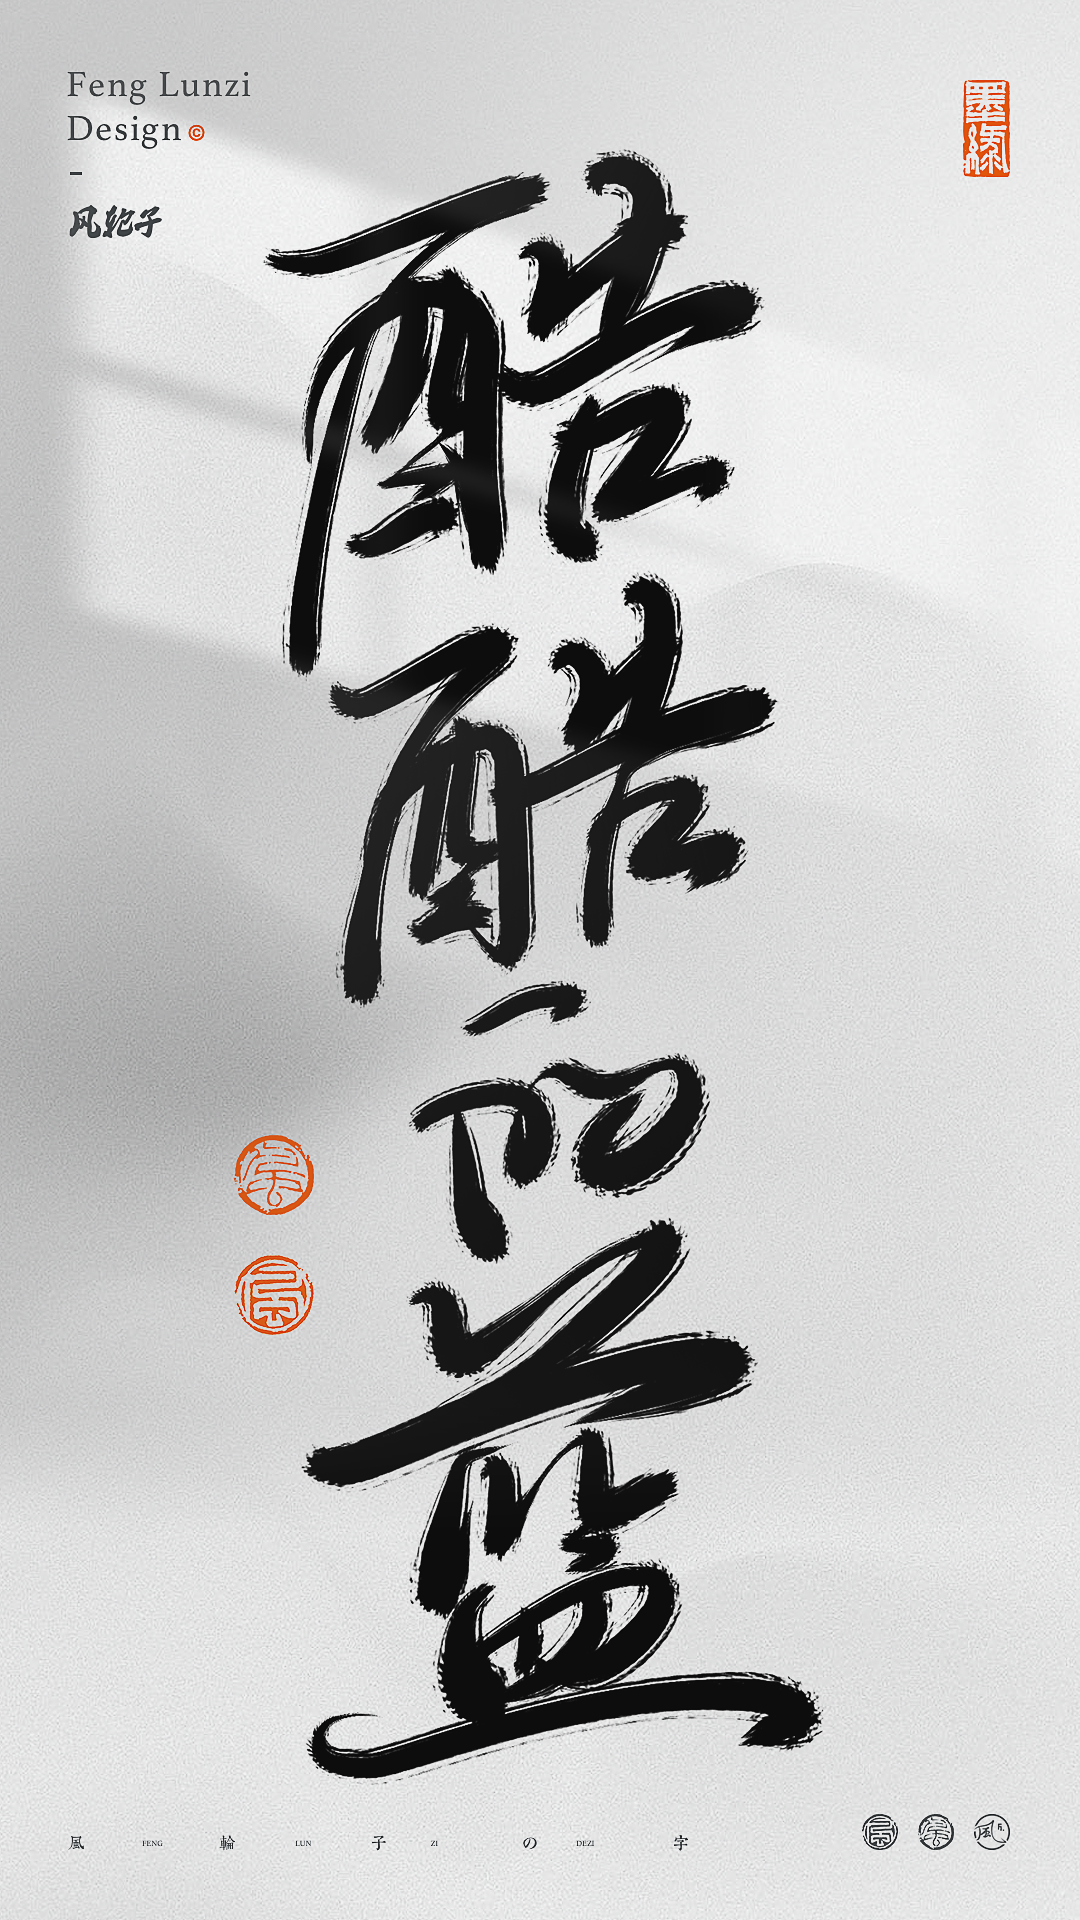 Feng Lunzi
Design©
-
风轮子
墨緣
酷酷的蓝
風 FENG 輪 LUN 子 ZI の DEZI 字